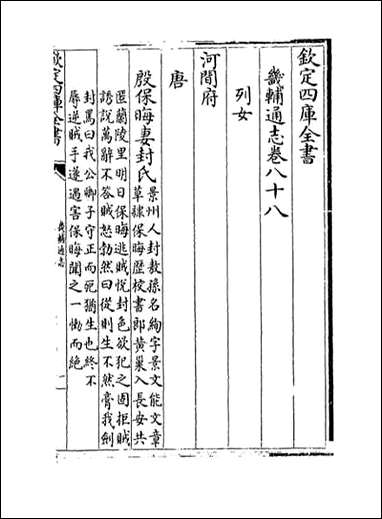 欽定四庫全書
畿輔通志卷八十八
列女
河間府
唐
殷保晦妻封氏景州人封敖孫名絢字景文能文章
草隸保晦歷校書郎黃巢入長安共
匿蘭陵里明日保晦逃賊悅封色欲犯之固拒賊
誘說萬辭不答賊怒勃然曰從則生不然膏我劍
封罵曰我公卿子守正而死猶生也終不
辱逆賊手遂遇害保晦聞之一慟而絕
欽定四庫全書
畿輔通志
一